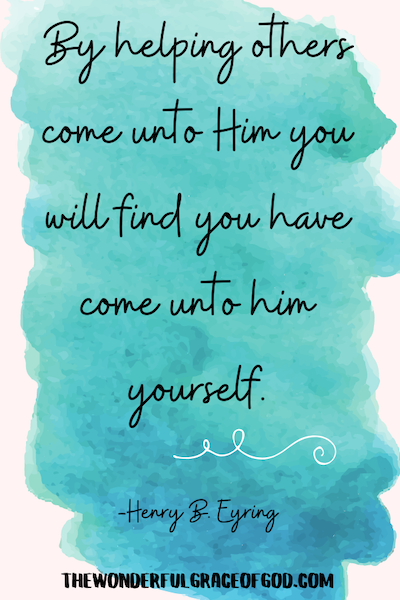 By helping others
come unto Him you
will find you have
come unto him
yourself.
-Henry B. Eyring
THEWONDERFULGRACEOFGOD.COM